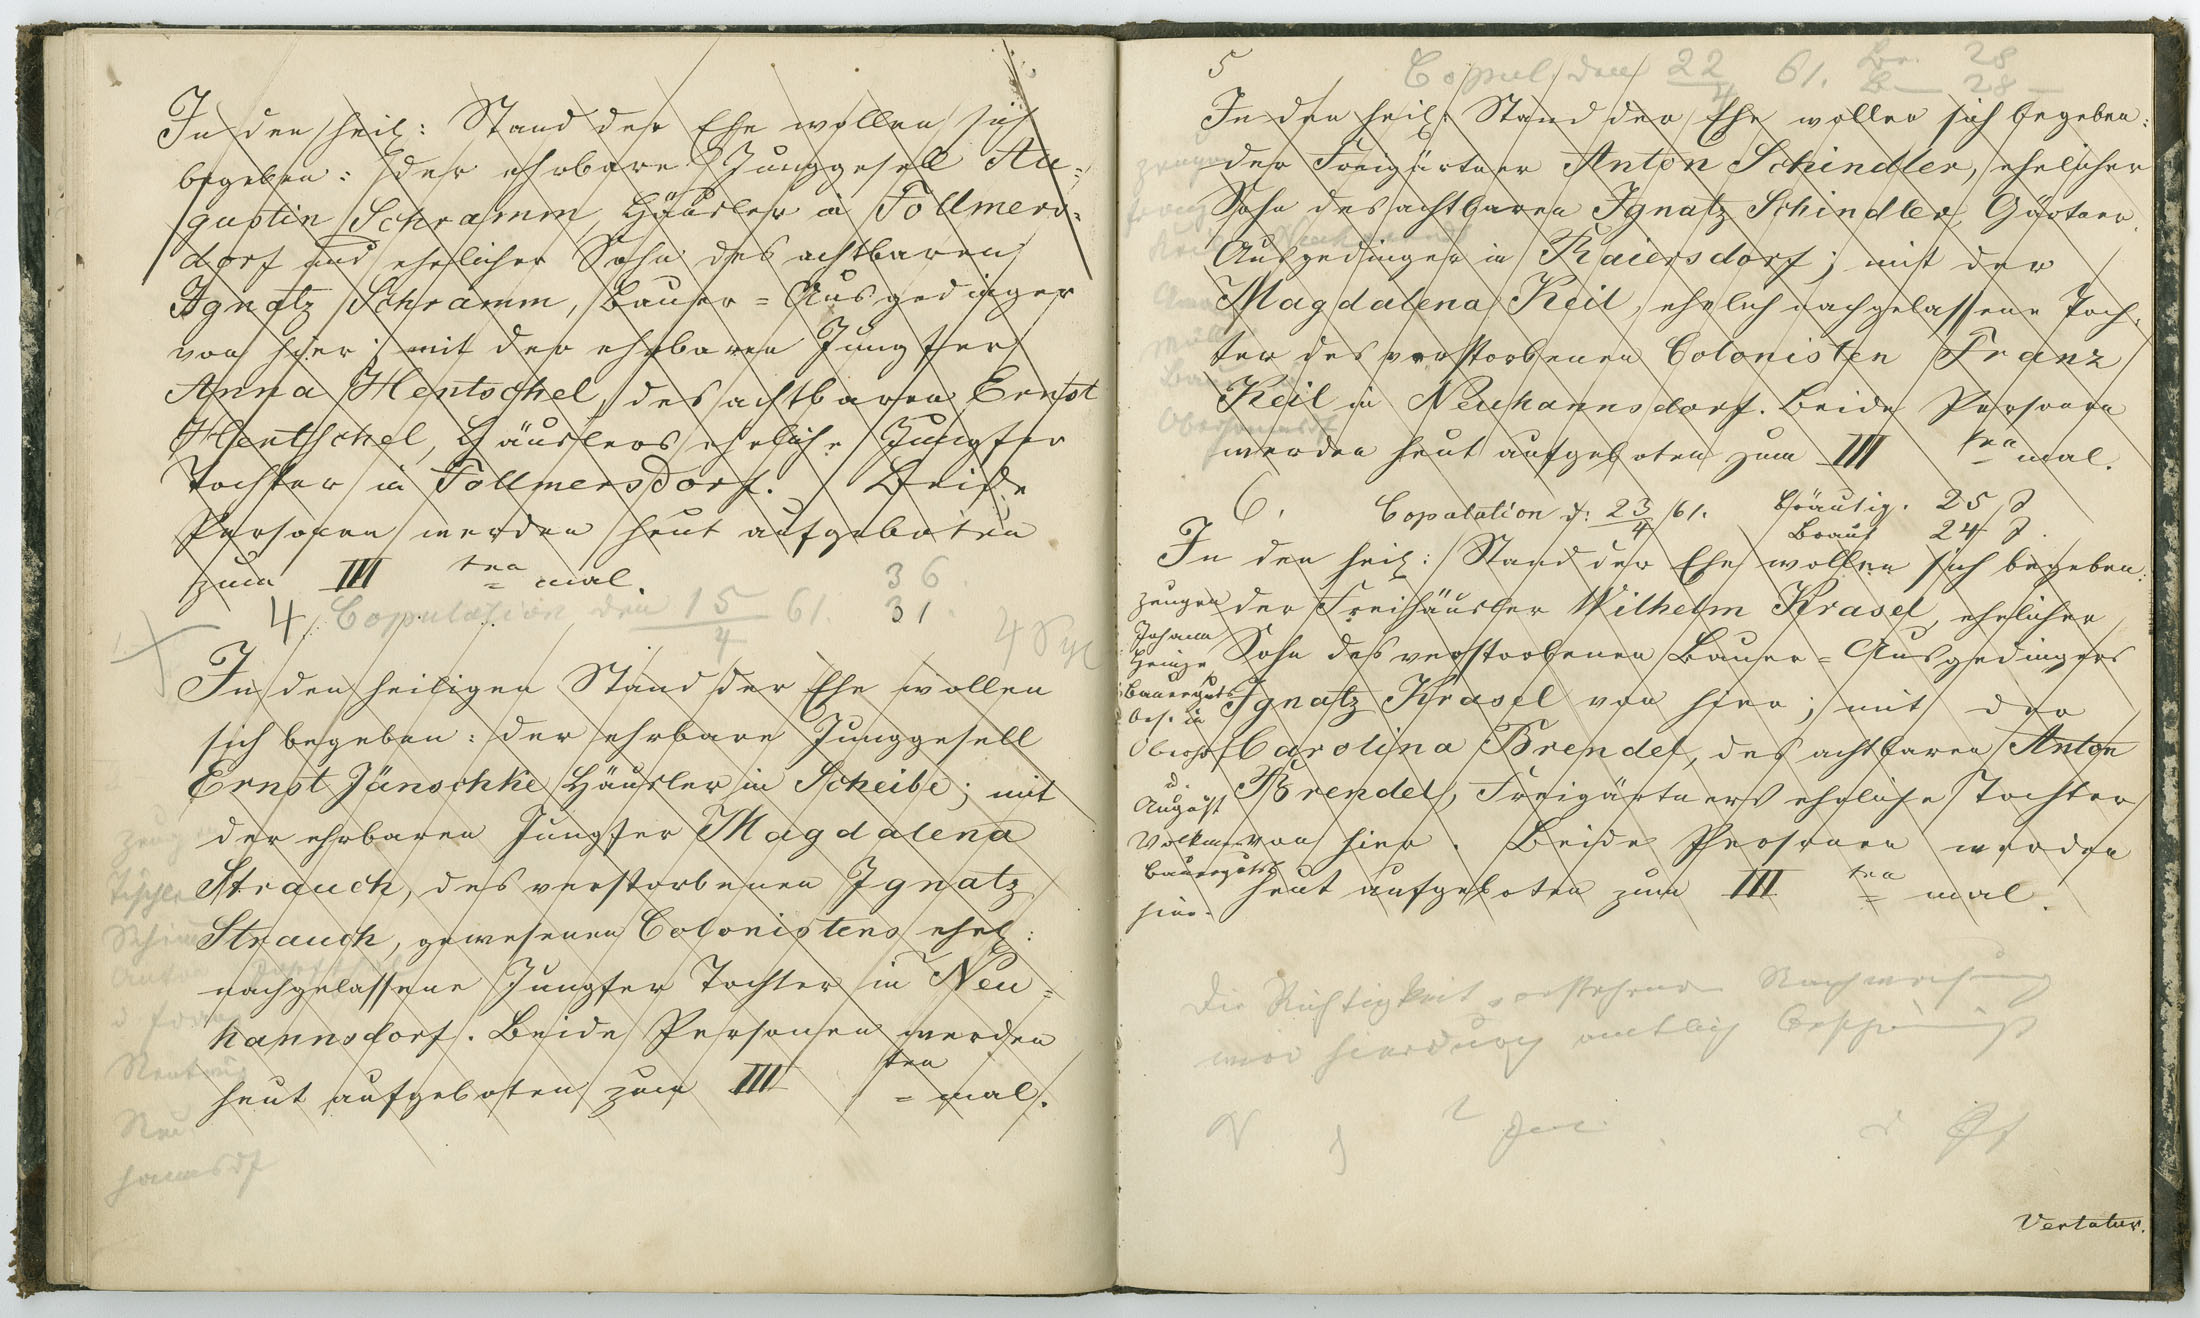 In den heil: Stand der Ehe wollen sich
begeben: der ehrbare Junggesell Au=
gustin Schramm, Häusler in Follmers=
dorf und ehelicher Sohn des achtbaren
Ignatz Schramm, Bauer=Ausgedinger
von hier; mit der ehrbaren Jungfer
Anna Hentschel, des achtbaren Ernst
Hentschel, Häuslers eheliche Jungfer
Tochter in Follmersdorf. Beide
Personen werden heut aufgeboten
zum III ten mal.
36.
4. Copulation den 15/4 61. 31.
In den heiligen Stand der Ehe wollen
sich begeben: der ehrbare Junggesell
Ernst Jänschke Häusler in Scheibe; mit
der ehrbaren Jungfer Magdalena
Strauch, des verstorbenen Ignatz
Strauch, gewesenen Colonistens ehel:
nachgelassene Jungfer Tochter in Neu=
hannsdorf. Beide Personen werden
heut aufgeboten zum III ten mal.
Zeugen
Tischler
Anton
Neu
hannsdf
5
Copul. den 22/4 61. Br. 28
B— 28 —
In den heil: Stand der Ehe wollen sich begeben:
der Freigärtner Anton Schindler, ehelicher
Sohn des achtbaren Ignatz Schindler, Gärtner
Ausgedinger in Raiersdorf; mit der
Magdalena Keil, ehelich nachgelassene Toch
ter des verstorbenen Colonisten Franz
Keil in Neuhannsdorf. Beide Personen
werden heut aufgeboten zum III ten mal.
Zeugen
Oberhannsdf
6. Copulation d: 23/4 61. Bräutig. 25 J
Braut 24 J.
In den heil: Stand der Ehe wollen sich begeben:
der Freihäusler Wilhelm Krasel, ehelicher
Sohn des verstorbenen Bauer=Ausgedingers
Ignatz Krasel von hier; mit der
Carolina Brendel, des achtbaren Anton
Brendel, Freigärtners eheliche Tochter
von hier. Beide Personen werden
heut aufgeboten zum III ten mal.
Zeugen
Johann
Heinze
Bauerguts
bes. in
u.
August
Volkmer
Bauergutsb
hier.
Die Richtigkeit vorstehender Nachweisung
wird hierdurch amtlich bescheinigt
Vertatur.